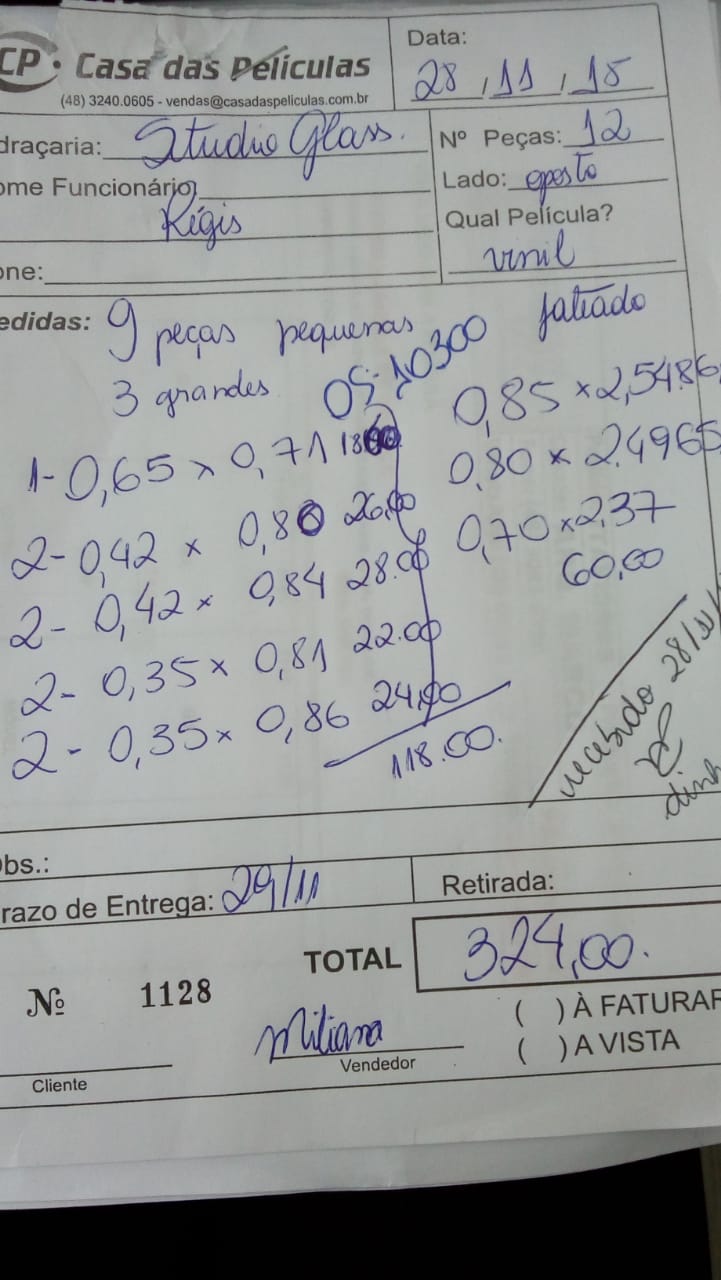 CP. Casa das Películas
(48) 3240.0605 - vendas@casadaspeliculas.com.br
Data:
28 / 11 / 15
draçaria: Studio Glass.
ome Funcionário
Régis
one:
Nº Peças: 12
Lado: oposto
Qual Película?
vinil
edidas: 9 peças pequenas
3 grandes
OS: 10300
fatiado
1- 0,65 x 0,71 18.00
2- 0,42 x 0,80 26.00
2- 0,42 x 0,84 28.00
2- 0,35 x 0,81 22.00
2- 0,35 x 0,86 24.00
118.00.
0,85 x 2,54 86,
0,80 x 2,49 65
0,70 x 2,37
60,00
recebido 28/11/
dinh
Obs.:
razo de Entrega: 29/11
Retirada:
TOTAL 324,00.
Nº 1128
( ) À FATURAR
( ) A VISTA
Miliana
Cliente
Vendedor